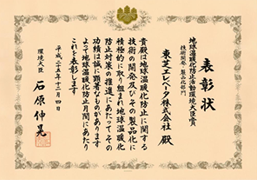 表彰状
地球温暖化防止活動環境大臣賞
技術開発・製品化部門
東芝エレベータ株式会社 殿
貴殿は地球温暖化防止に関する
技術の開発及びその製品化に
積極的に取り組まれ地球温暖化
防止対策の推進にあたってその
功績は特に顕著なものがあります
よって地球温暖化防止月間にあたり
これを表彰します
平成二十五年十二月四日
環境大臣
石原伸晃